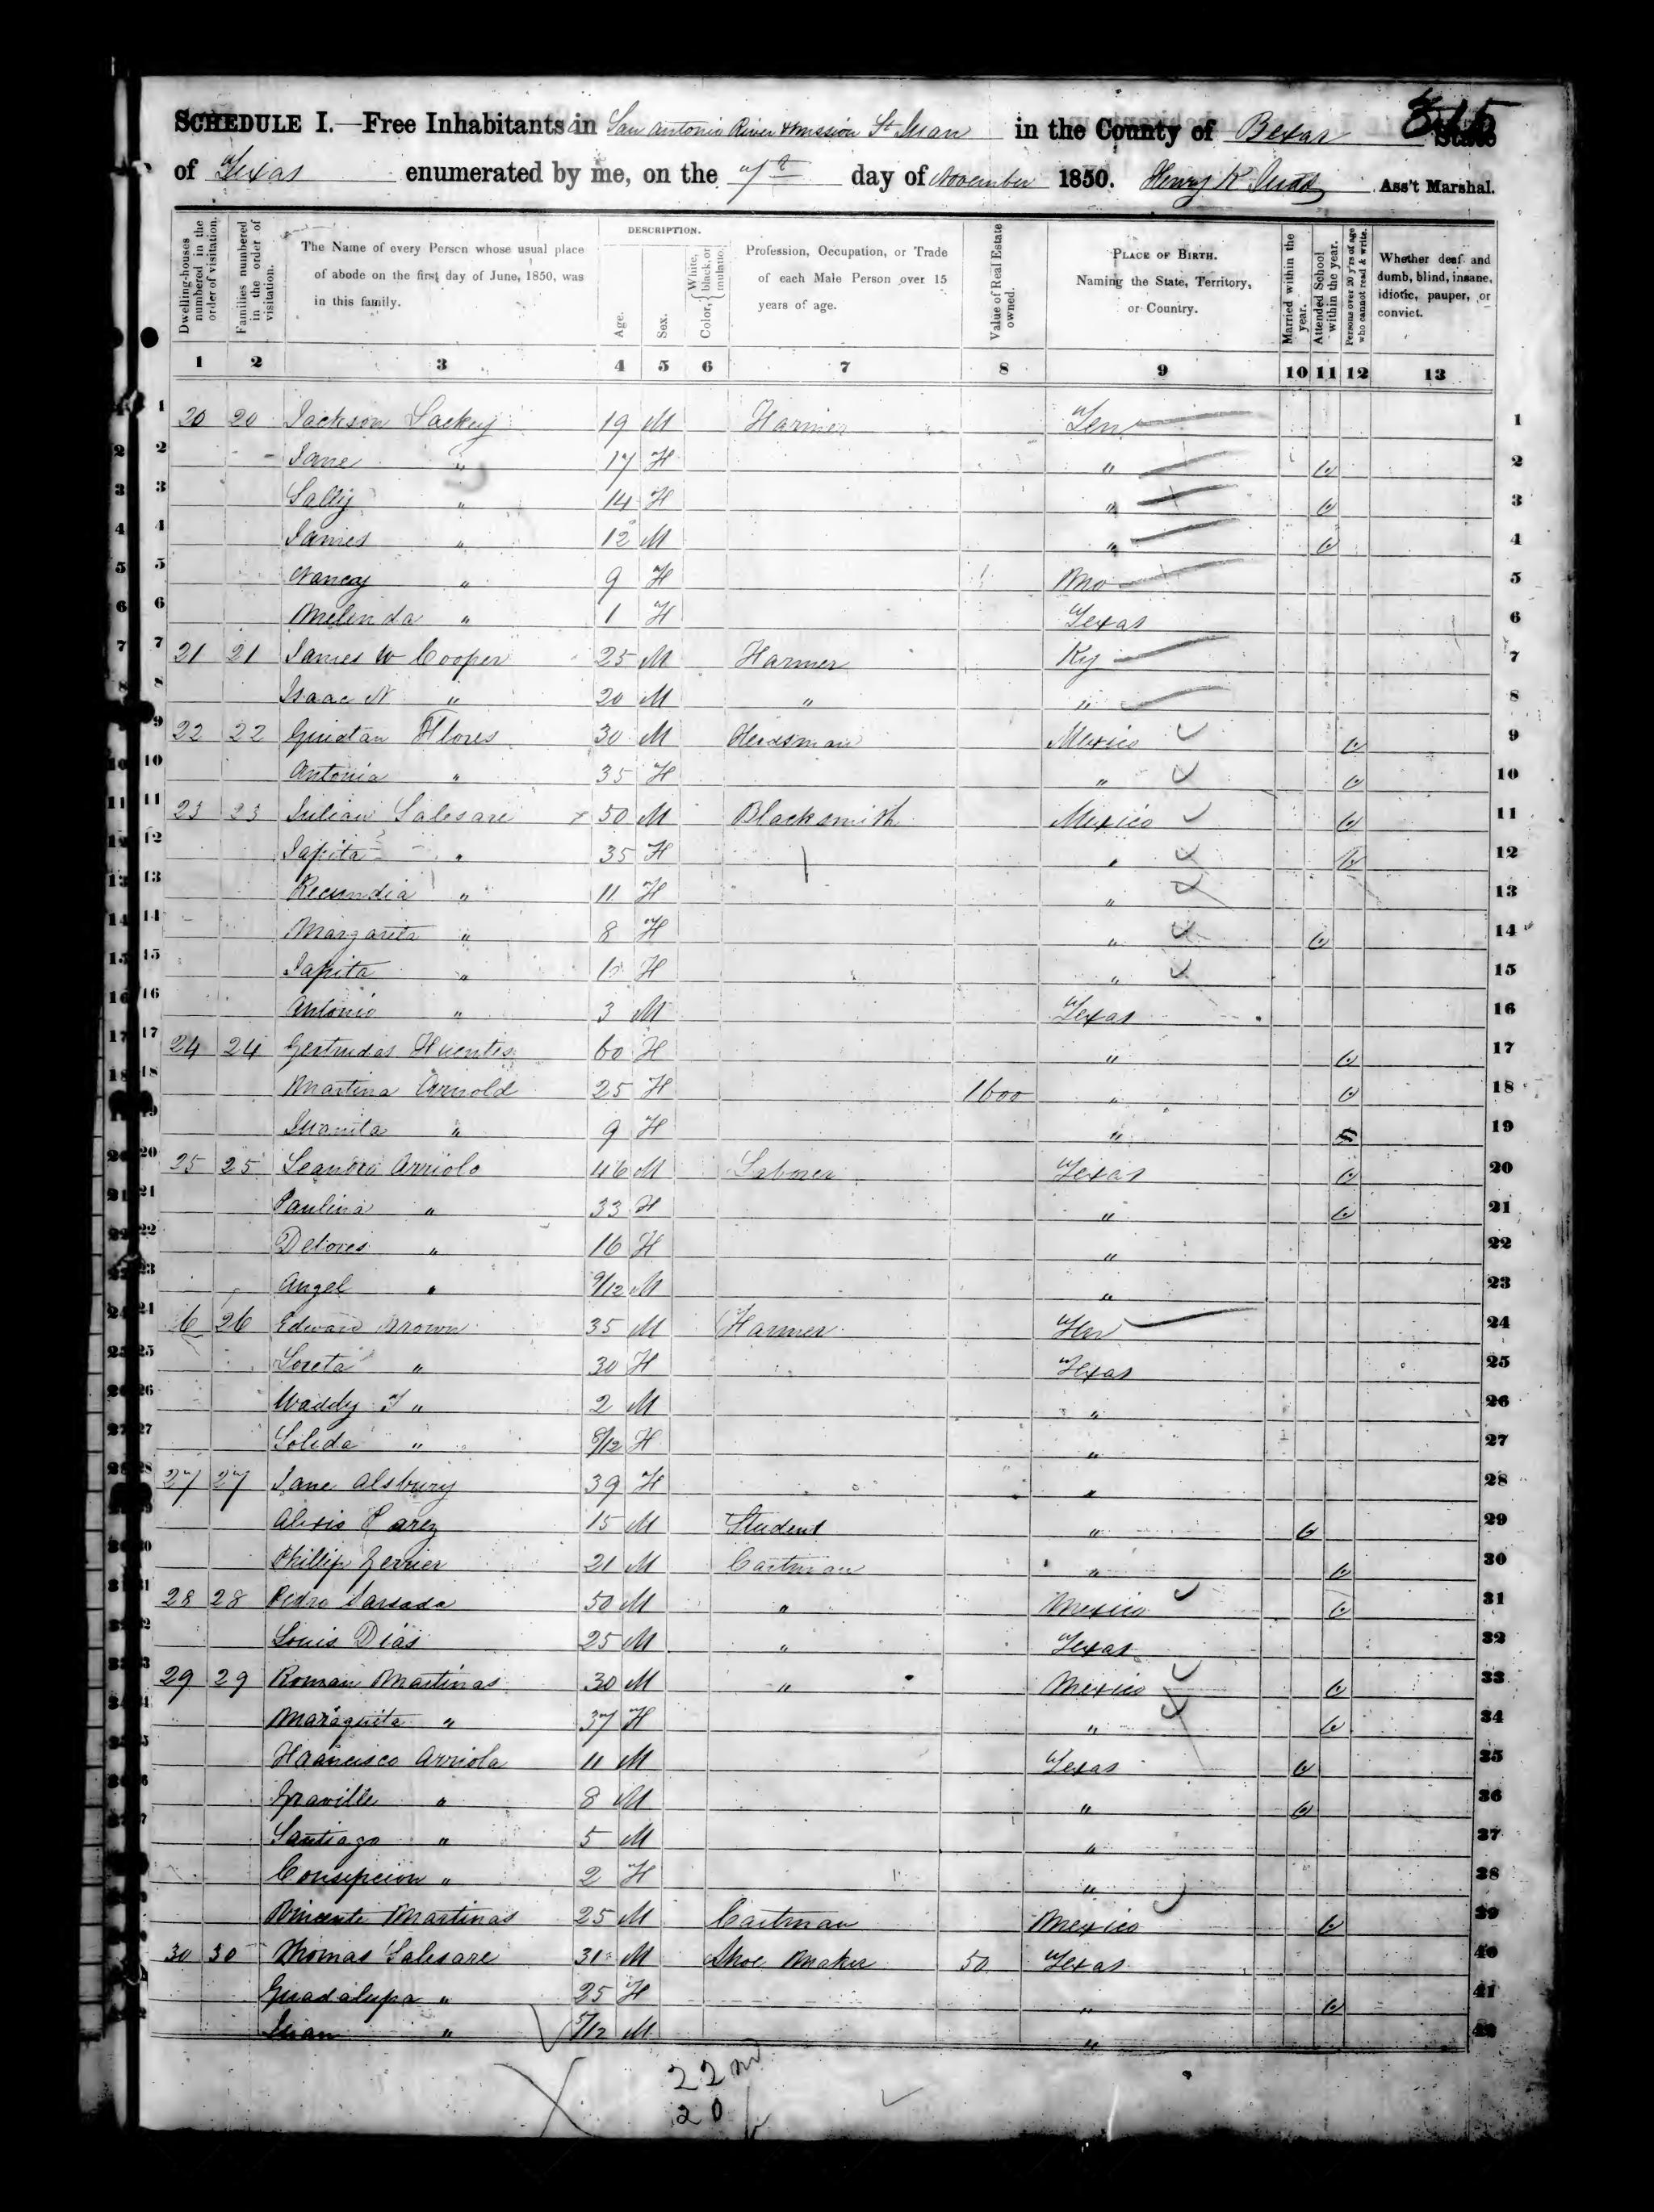 315
SCHEDULE I.—Free Inhabitants in San Antonio River & Mission St Juan in the County of Bexar State
of Texas enumerated by me, on the 7th day of November 1850. Henry K Judd Ass't Marshal.
Dwelling-houses numbered in the order of visitation.
Families numbered in the order of visitation.
The Name of every Person whose usual place of abode on the first day of June, 1850, was in this family.
DESCRIPTION.
Age.
Sex.
Color, White, black, or mulatto.
Profession, Occupation, or Trade of each Male Person over 15 years of age.
Value of Real Estate owned.
PLACE OF BIRTH. Naming the State, Territory, or Country.
Married within the year.
Attended School within the year.
Persons over 20 y'rs of age who cannot read & write.
Whether deaf and dumb, blind, insane, idiotic, pauper, or convict.
1 2 3 4 5 6 7 8 9 10 11 12 13
1 20 20 Jackson Lackey 19 M Farmer Ten 1
2 Jane " 17 F " 2
3 Sally " 14 F " 3
4 James " 12 M " 4
5 Nancy " 9 F Mo 5
6 Melinda " 1 F Texas 6
7 21 21 James W Cooper 25 M Farmer Ky 7
8 Isaac N " 20 M " " 8
9 22 22 Flores 30 M Herdsman Mexico 9
10 Antonia " 35 F " 10
11 23 23 Julian Salesare 50 M Blacksmith Mexico 11
12 Japita " 35 F " 12
13 Recundia " 11 F " 13
14 Margarita " 8 F " 14
15 Japita " F " 15
16 Antonio " 3 M Texas 16
17 24 24 Gertrudas Fuentis 60 F " 17
18 Martina Arnold 25 F 1600 " 18
19 Juanita " 9 F " 19
20 25 25 Leandro Arriola 46 M Laborer Texas 20
21 Paulina " 33 F " 21
22 Delores " 16 F " 22
23 Angel " 9/12 M " 23
24 26 26 Edward Brown 35 M Farmer Ten 24
25 Loreta " 30 F Texas 25
26 Waddy T " 2 M " 26
27 Solida " 8/12 F " 27
28 27 27 Jane Alsbury 39 F " 28
29 Alexis Parez 15 M Student " 29
30 Phillip Zerrier 21 M Cartman " 30
31 28 28 Pedro 50 M " Mexico 31
32 Louis Dias 25 M " Texas 32
33 29 29 Roman Martinas 30 M " Mexico 33
34 Maraquita " 37 F " 34
35 Francisco Arriola 11 M Texas 35
36 Graville " 8 M " 36
37 Santiago " 5 M " 37
38 Consepcion " 2 F " 38
39 Vincente Martinas 25 M Cartman Mexico 39
40 30 30 Thomas Salesare 31 M Shoe Maker 50 Texas 40
41 Guadalupa " 25 F " 41
42 Juan " 5/12 M " 42
22 m
20 f